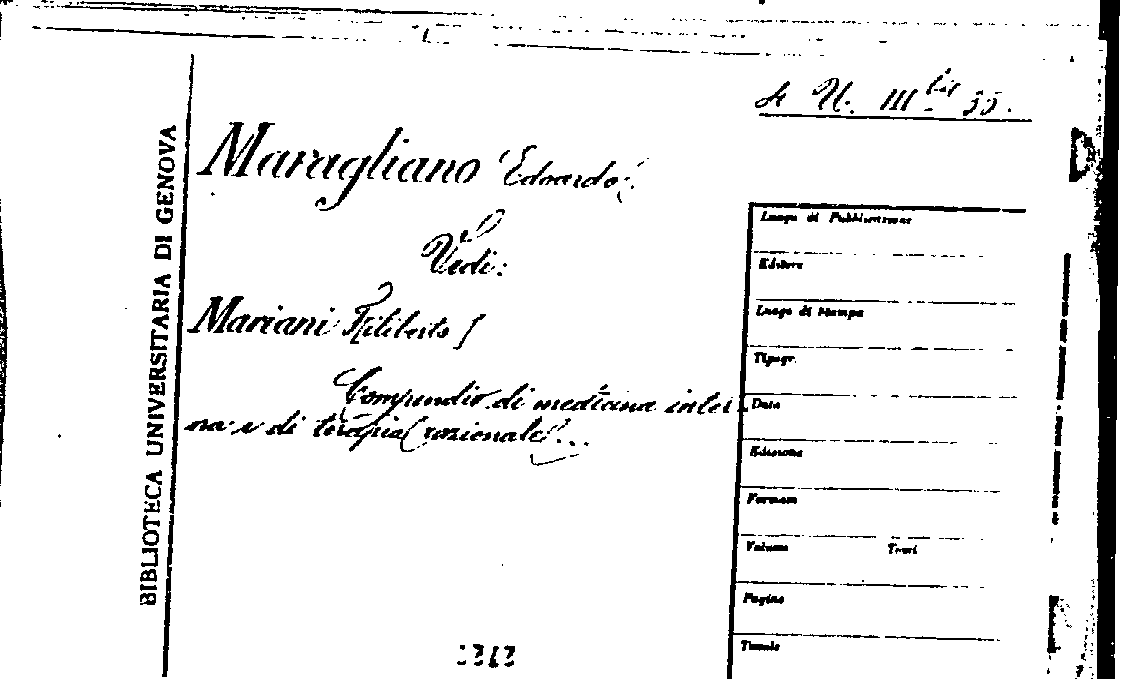 BIBLIOTECA UNIVERSITARIA DI GENOVA
4 U. III bis 35.
Maragliano Edoardo.
Vedi:
Mariani Filiberto
Compendio di medicina inter
na e di terapia razionale...
Luogo di Pubblicazione
Editore
Luogo di Stampa
Tipogr.
Data
Edizione
Formato
Volume Tavi
Pagine